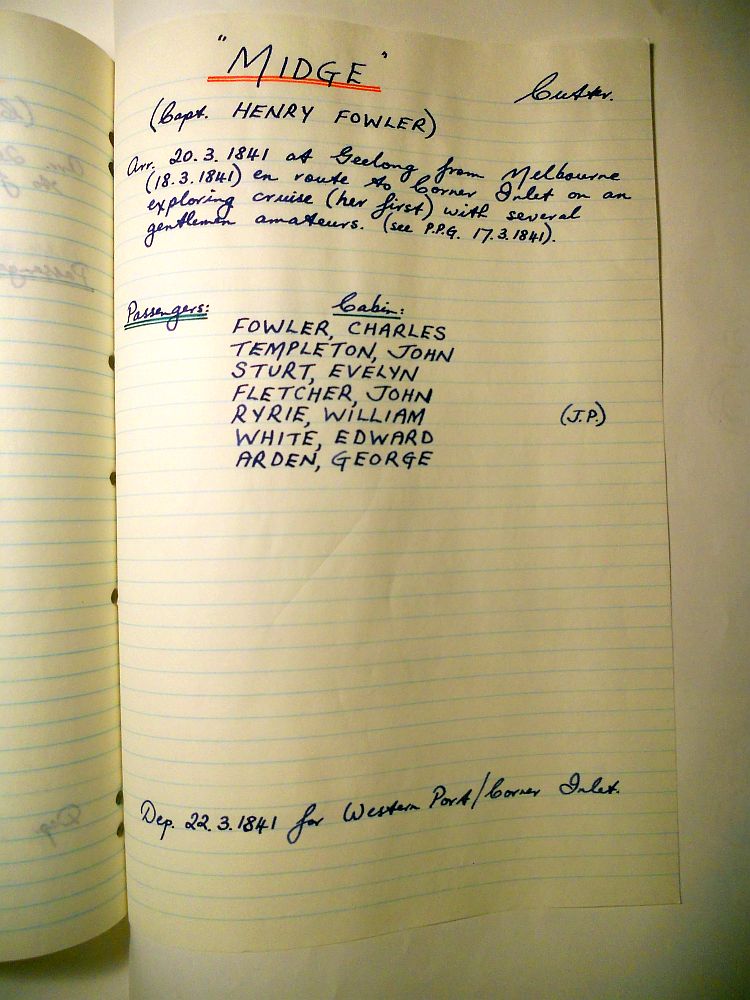 "MIDGE"
Cutter.
(Capt. HENRY FOWLER)
Arr. 20.3.1841 at Geelong from Melbourne
(18.3.1841) en route to Corner Inlet on an
exploring cruise (her first) with several
gentlemen amateurs. (see P.P.G. 17.3.1841).
Passengers: Cabin:
FOWLER, CHARLES
TEMPLETON, JOHN
STURT, EVELYN
FLETCHER, JOHN
RYRIE, WILLIAM (J.P.)
WHITE, EDWARD
ARDEN, GEORGE
Dep. 22.3.1841 for Western Port/Corner Inlet.